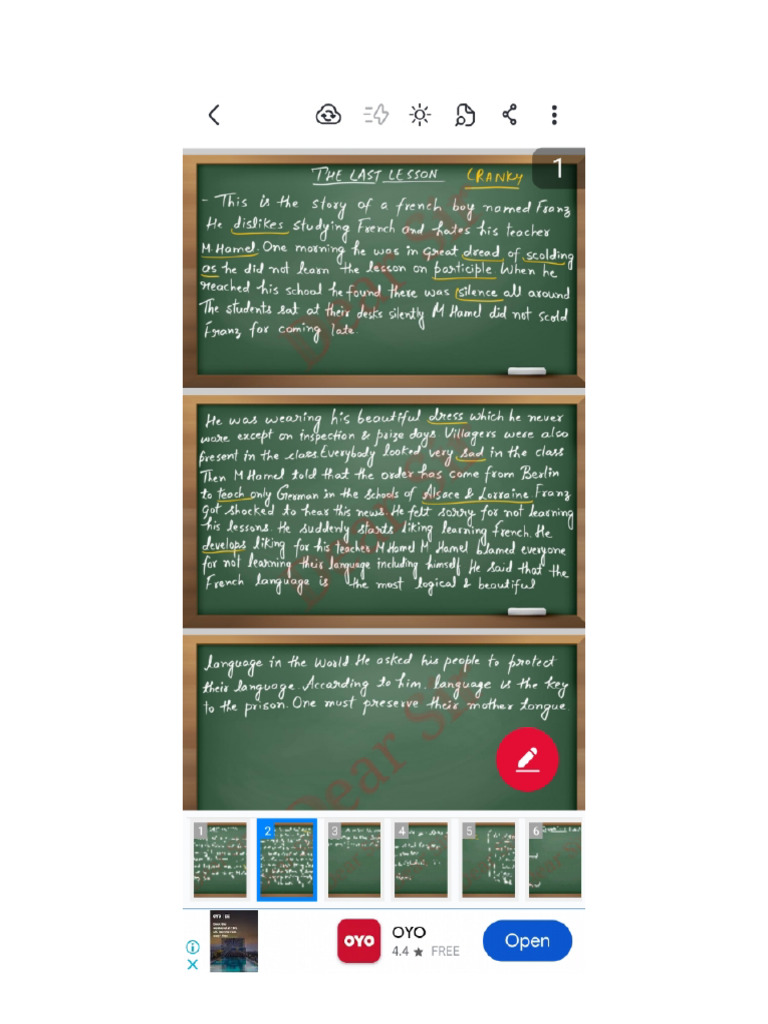 THE LAST LESSON CRANKY 1
- This is the story of a french boy named Franz
He dislikes studying French and hates his teacher
M. Hamel. One morning he was in Great dread of scolding
as he did not learn the lesson on participle. When he
reached his school he found there was silence all around
The students sat at their desks silently M Hamel did not scold
Franz for coming late.
He was wearing his beautiful dress which he never
wore except on inspection & prize days Villagers were also
present in the class. Everybody looked very sad in the class
Then M Hamel told that the order has come from Berlin
to teach only German in the schools of Alsace & Lorraine Franz
Got shocked to hear this news. He felt sorry for not learning
his lessons. He suddenly starts liking learning French. He
develops liking for his teacher M Hamel M Hamel blamed everyone
for not learning their language including himself He said that the
French language is the most logical & beautiful
language in the World He asked his people to protect
their language. According to him, language is the key
to the prison. One must preserve their mother tongue.
Dear Sir
Dear Sir
Dear Sir
1 2 3 4 5 6
OYO
OYO
4.4 ★ FREE
Open